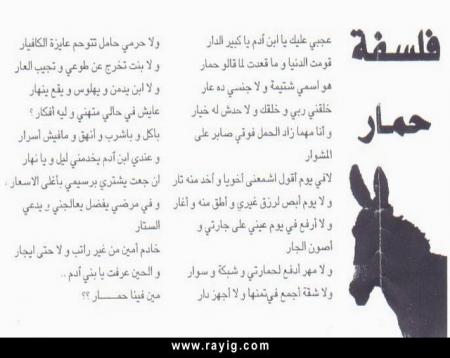 فلسفة
حمار
عجبي عليك يا ابن أدم يا كبير الدار
قومت الدنيا و ما قعدت لما قالو حمار
هو اسمي شتيمة و لا جنسي ده عار
خلقني ربي و خلقك و لا حدش له خيار
و أنا مهما زاد الحمل فوقي صابر على
المشوار
لافي يوم أقول اشمعنى أخويا و أخد منه تار
و لا يوم أبص لرزق غيري و أطق منه و أغار
و لا أرفع في يوم عيني على جارتي و
أصون الجار
و لا مهر أدفع لحمارتي و شبكة و سوار
ولا شقة أجمع في تمنها و لا أجهز دار
ولا حرمي حامل تتوحم عايزة الكافيار
و لا بنت تخرج عن طوعي و تجيب العار
و لا ابن يدمن و يهلوس و يقع ينهار
عايش في حالي متهني و ليه أفكار ؟
باكل و باشرب و أنهق و مافيش أسرار
و عندي ابن أدم يخدمني ليل و يا نهار
ان جعت يشتري برسيمي بأغلى الاسعار ،
و في مرضي يفضل يعالجني و يدعي
الستار
خادم أمين من غير راتب و لا حتى ايجار
و الحين عرفت يا بني أدم ..
مين فينا حمـــــار ؟؟
www.rayig.com